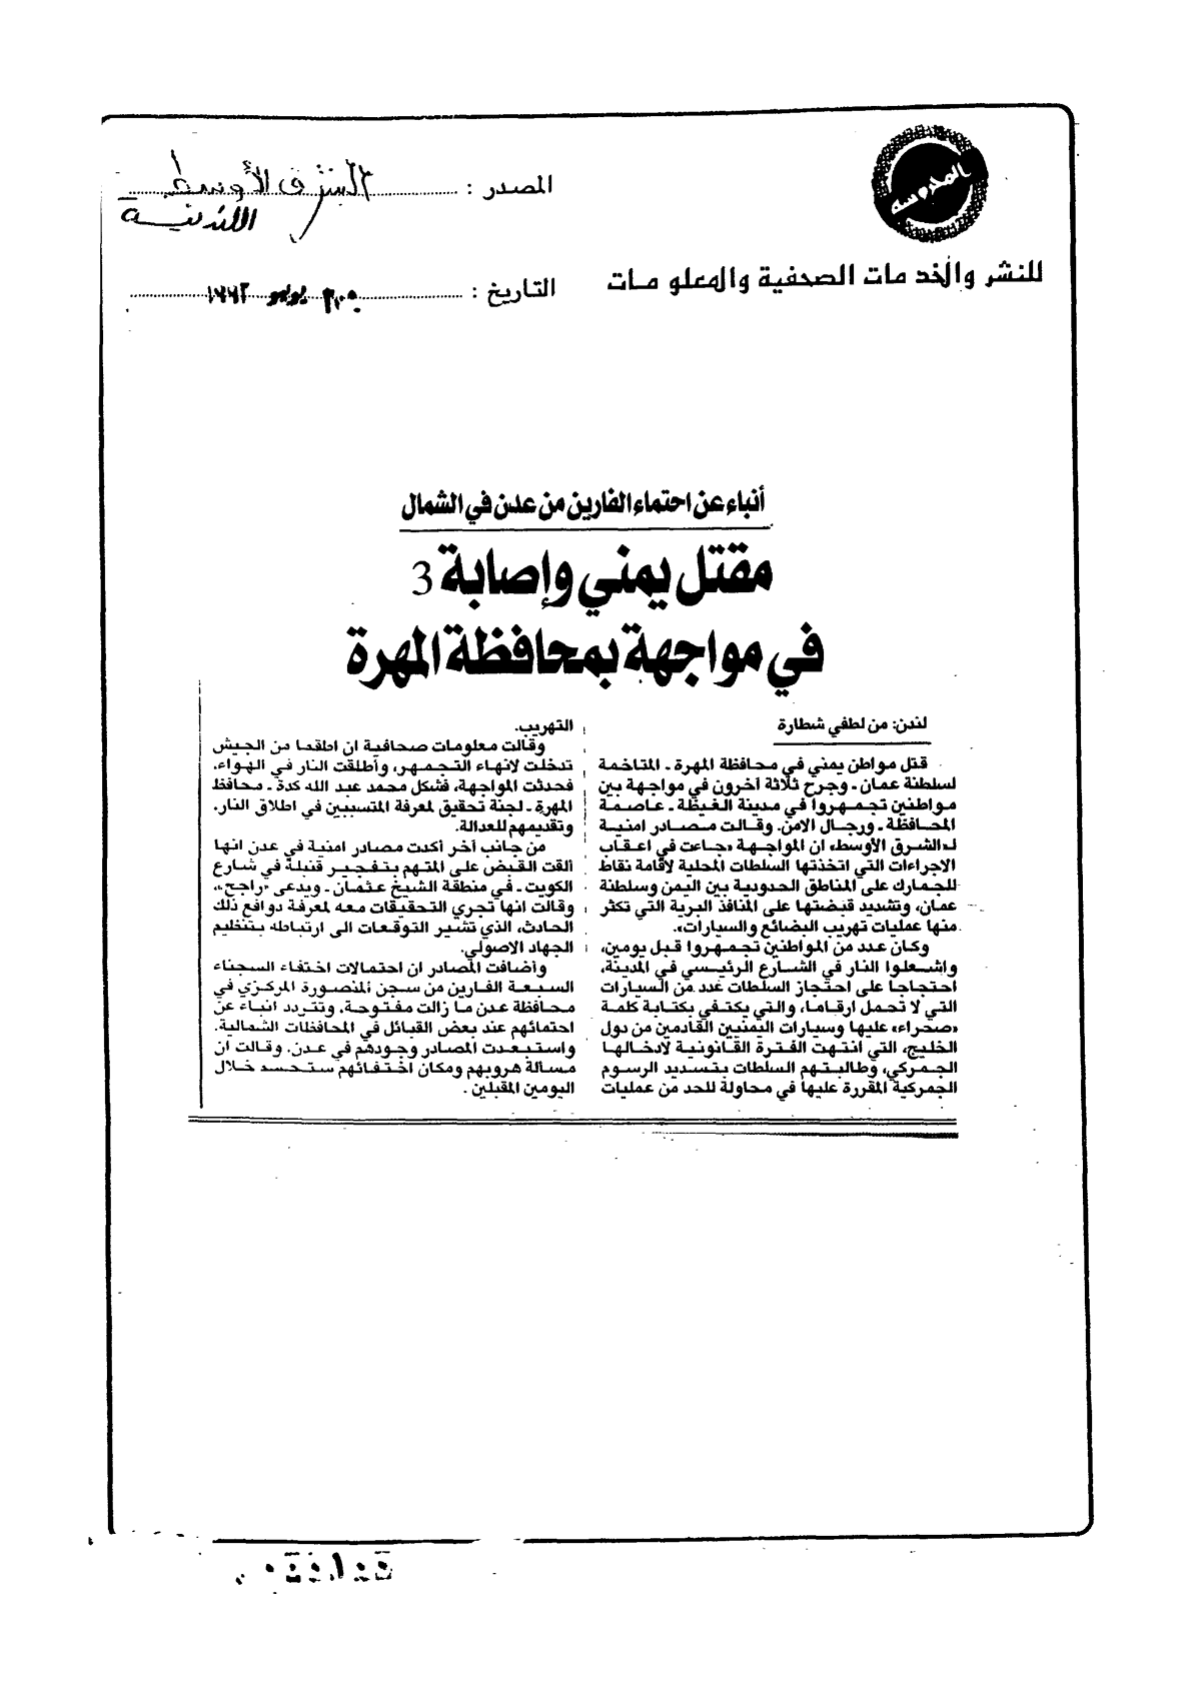 المدرسة
للنشر والخدمات الصحفية والمعلومات
المصدر : الشرق الأوسط
اللندنية
التاريخ : يوليو
أنباء عن احتماء الفارين من عدن في الشمال
مقتل يمني وإصابة 3
في مواجهة بمحافظة المهرة
لندن: من لطفي شطارة
قتل مواطن يمني في محافظة المهرة ـ المتاخمة
لسلطنة عمان ـ وجرح ثلاثة آخرون في مواجهة بين
مواطنين تجمهروا في مدينة الغيظة ـ عاصمة
المحافظة ـ ورجال الامن. وقالت مصادر امنية
لـ«الشرق الأوسط» ان المواجهة «جاءت في اعقاب
الاجراءات التي اتخذتها السلطات المحلية لاقامة نقاط
للجمارك على المناطق الحدودية بين اليمن وسلطنة
عمان، وتشديد قبضتها على المنافذ البرية التي تكثر
منها عمليات تهريب البضائع والسيارات».
وكان عدد من المواطنين تجمهروا قبل يومين،
واشعلوا النار في الشارع الرئيسي في المدينة،
احتجاجاً على احتجاز السلطات عدد من السيارات
التي لا تحمل ارقاما، والتي يكتفي بكتابة كلمة
«صحراء» عليها وسيارات اليمنيين القادمين من دول
الخليج، التي انتهت الفترة القانونية لادخالها
الجمركي، وطالبتهم السلطات بتسديد الرسوم
الجمركية المقررة عليها في محاولة للحد من عمليات
التهريب.
وقالت معلومات صحافية ان اطقما من الجيش
تدخلت لانهاء التجمهر، وأطلقت النار في الهواء،
فحدثت المواجهة، فشكل محمد عبد الله كدة ـ محافظ
المهرة ـ لجنة تحقيق لمعرفة المتسببين في اطلاق النار،
وتقديمهم للعدالة.
من جانب آخر أكدت مصادر امنية في عدن انها
ألقت القبض على المتهم بتفجير قنبلة في شارع
الكويت ـ في منطقة الشيخ عثمان ـ ويدعى «راجح»،
وقالت انها تجري التحقيقات معه لمعرفة دوافع ذلك
الحادث، الذي تشير التوقعات الى ارتباطه بتنظيم
الجهاد الاصولي.
وأضافت المصادر ان احتمالات اختفاء السجناء
السبعة الفارين من سجن المنصورة المركزي في
محافظة عدن ما زالت مفتوحة، وتتردد انباء عن
احتمائهم عند بعض القبائل في المحافظات الشمالية.
واستبعدت المصادر وجودهم في عدن. وقالت ان
مسالة هروبهم ومكان اختفائهم ستحسد خلال
اليومين المقبلين .